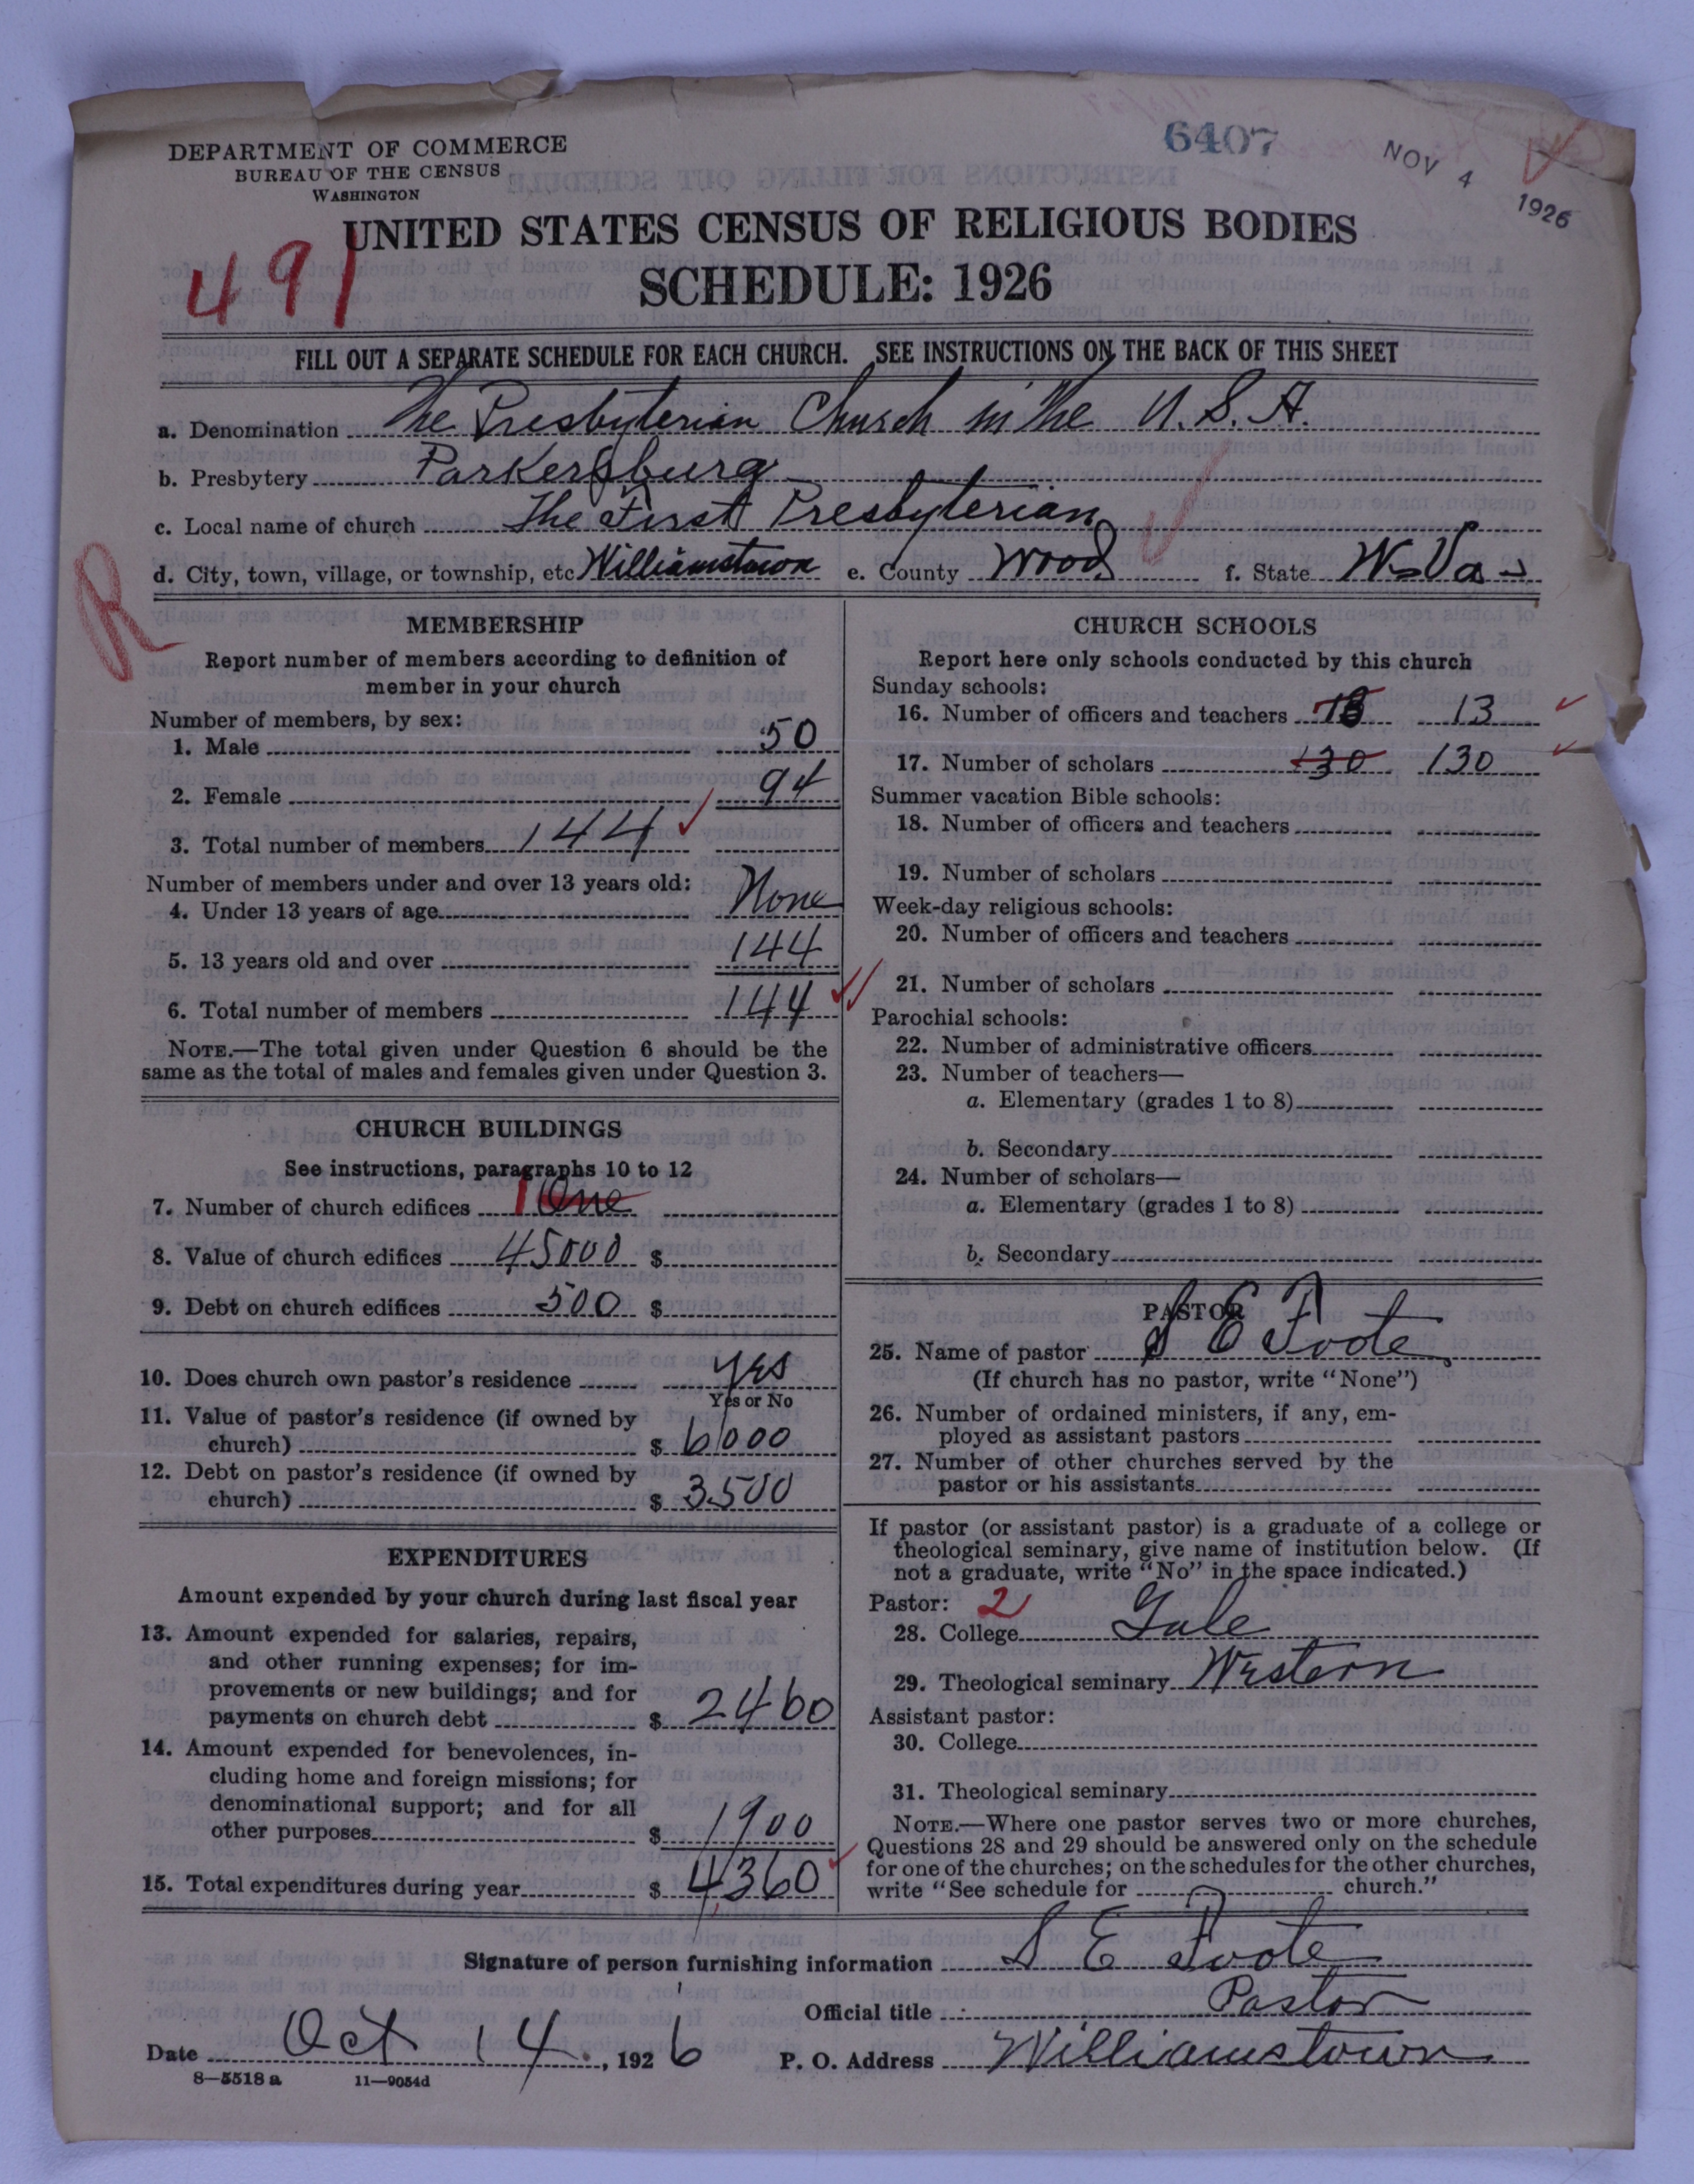 6407
NOV 4 1926
DEPARTMENT OF COMMERCE
BUREAU OF THE CENSUS
WASHINGTON
UNITED STATES CENSUS OF RELIGIOUS BODIES
491
SCHEDULE: 1926
FILL OUT A SEPARATE SCHEDULE FOR EACH CHURCH. SEE INSTRUCTIONS ON THE BACK OF THIS SHEET
a. Denomination The Presbyterian Church in the U.S.A.
b. Presbytery Parkersburg
c. Local name of church The First Presbyterian
d. City, town, village, or township, etc Williamstown e. County Wood f. State W. Va
R
MEMBERSHIP
Report number of members according to definition of
member in your church
Number of members, by sex:
1. Male 50
2. Female 94
3. Total number of members 144
Number of members under and over 13 years old:
4. Under 13 years of age None
5. 13 years old and over 144
6. Total number of members 144
NOTE.—The total given under Question 6 should be the
same as the total of males and females given under Question 3.
CHURCH BUILDINGS
See instructions, paragraphs 10 to 12
7. Number of church edifices 1 One
8. Value of church edifices 45000 $
9. Debt on church edifices 500 $
10. Does church own pastor's residence yes
Yes or No
11. Value of pastor's residence (if owned by
church) $ 6000
12. Debt on pastor's residence (if owned by
church) $ 3500
EXPENDITURES
Amount expended by your church during last fiscal year
13. Amount expended for salaries, repairs,
and other running expenses; for im-
provements or new buildings; and for
payments on church debt $ 2460
14. Amount expended for benevolences, in-
cluding home and foreign missions; for
denominational support; and for all
other purposes $ 1900
15. Total expenditures during year $ 4360
CHURCH SCHOOLS
Report here only schools conducted by this church
Sunday schools:
16. Number of officers and teachers 13
17. Number of scholars 130 130
Summer vacation Bible schools:
18. Number of officers and teachers
19. Number of scholars
Week-day religious schools:
20. Number of officers and teachers
21. Number of scholars
Parochial schools:
22. Number of administrative officers
23. Number of teachers—
a. Elementary (grades 1 to 8)
b. Secondary
24. Number of scholars—
a. Elementary (grades 1 to 8)
b. Secondary
PASTOR
25. Name of pastor S E Foote
(If church has no pastor, write "None")
26. Number of ordained ministers, if any, em-
ployed as assistant pastors
27. Number of other churches served by the
pastor or his assistants
If pastor (or assistant pastor) is a graduate of a college or
theological seminary, give name of institution below. (If
not a graduate, write "No" in the space indicated.)
Pastor: 2
28. College Yale
29. Theological seminary Western
Assistant pastor:
30. College
31. Theological seminary
NOTE.—Where one pastor serves two or more churches,
Questions 28 and 29 should be answered only on the schedule
for one of the churches; on the schedules for the other churches,
write "See schedule for church."
Signature of person furnishing information S E Foote
Official title Pastor
Date Oct 14, 1926 P. O. Address Williamstown
8—5518 a 11—9054d